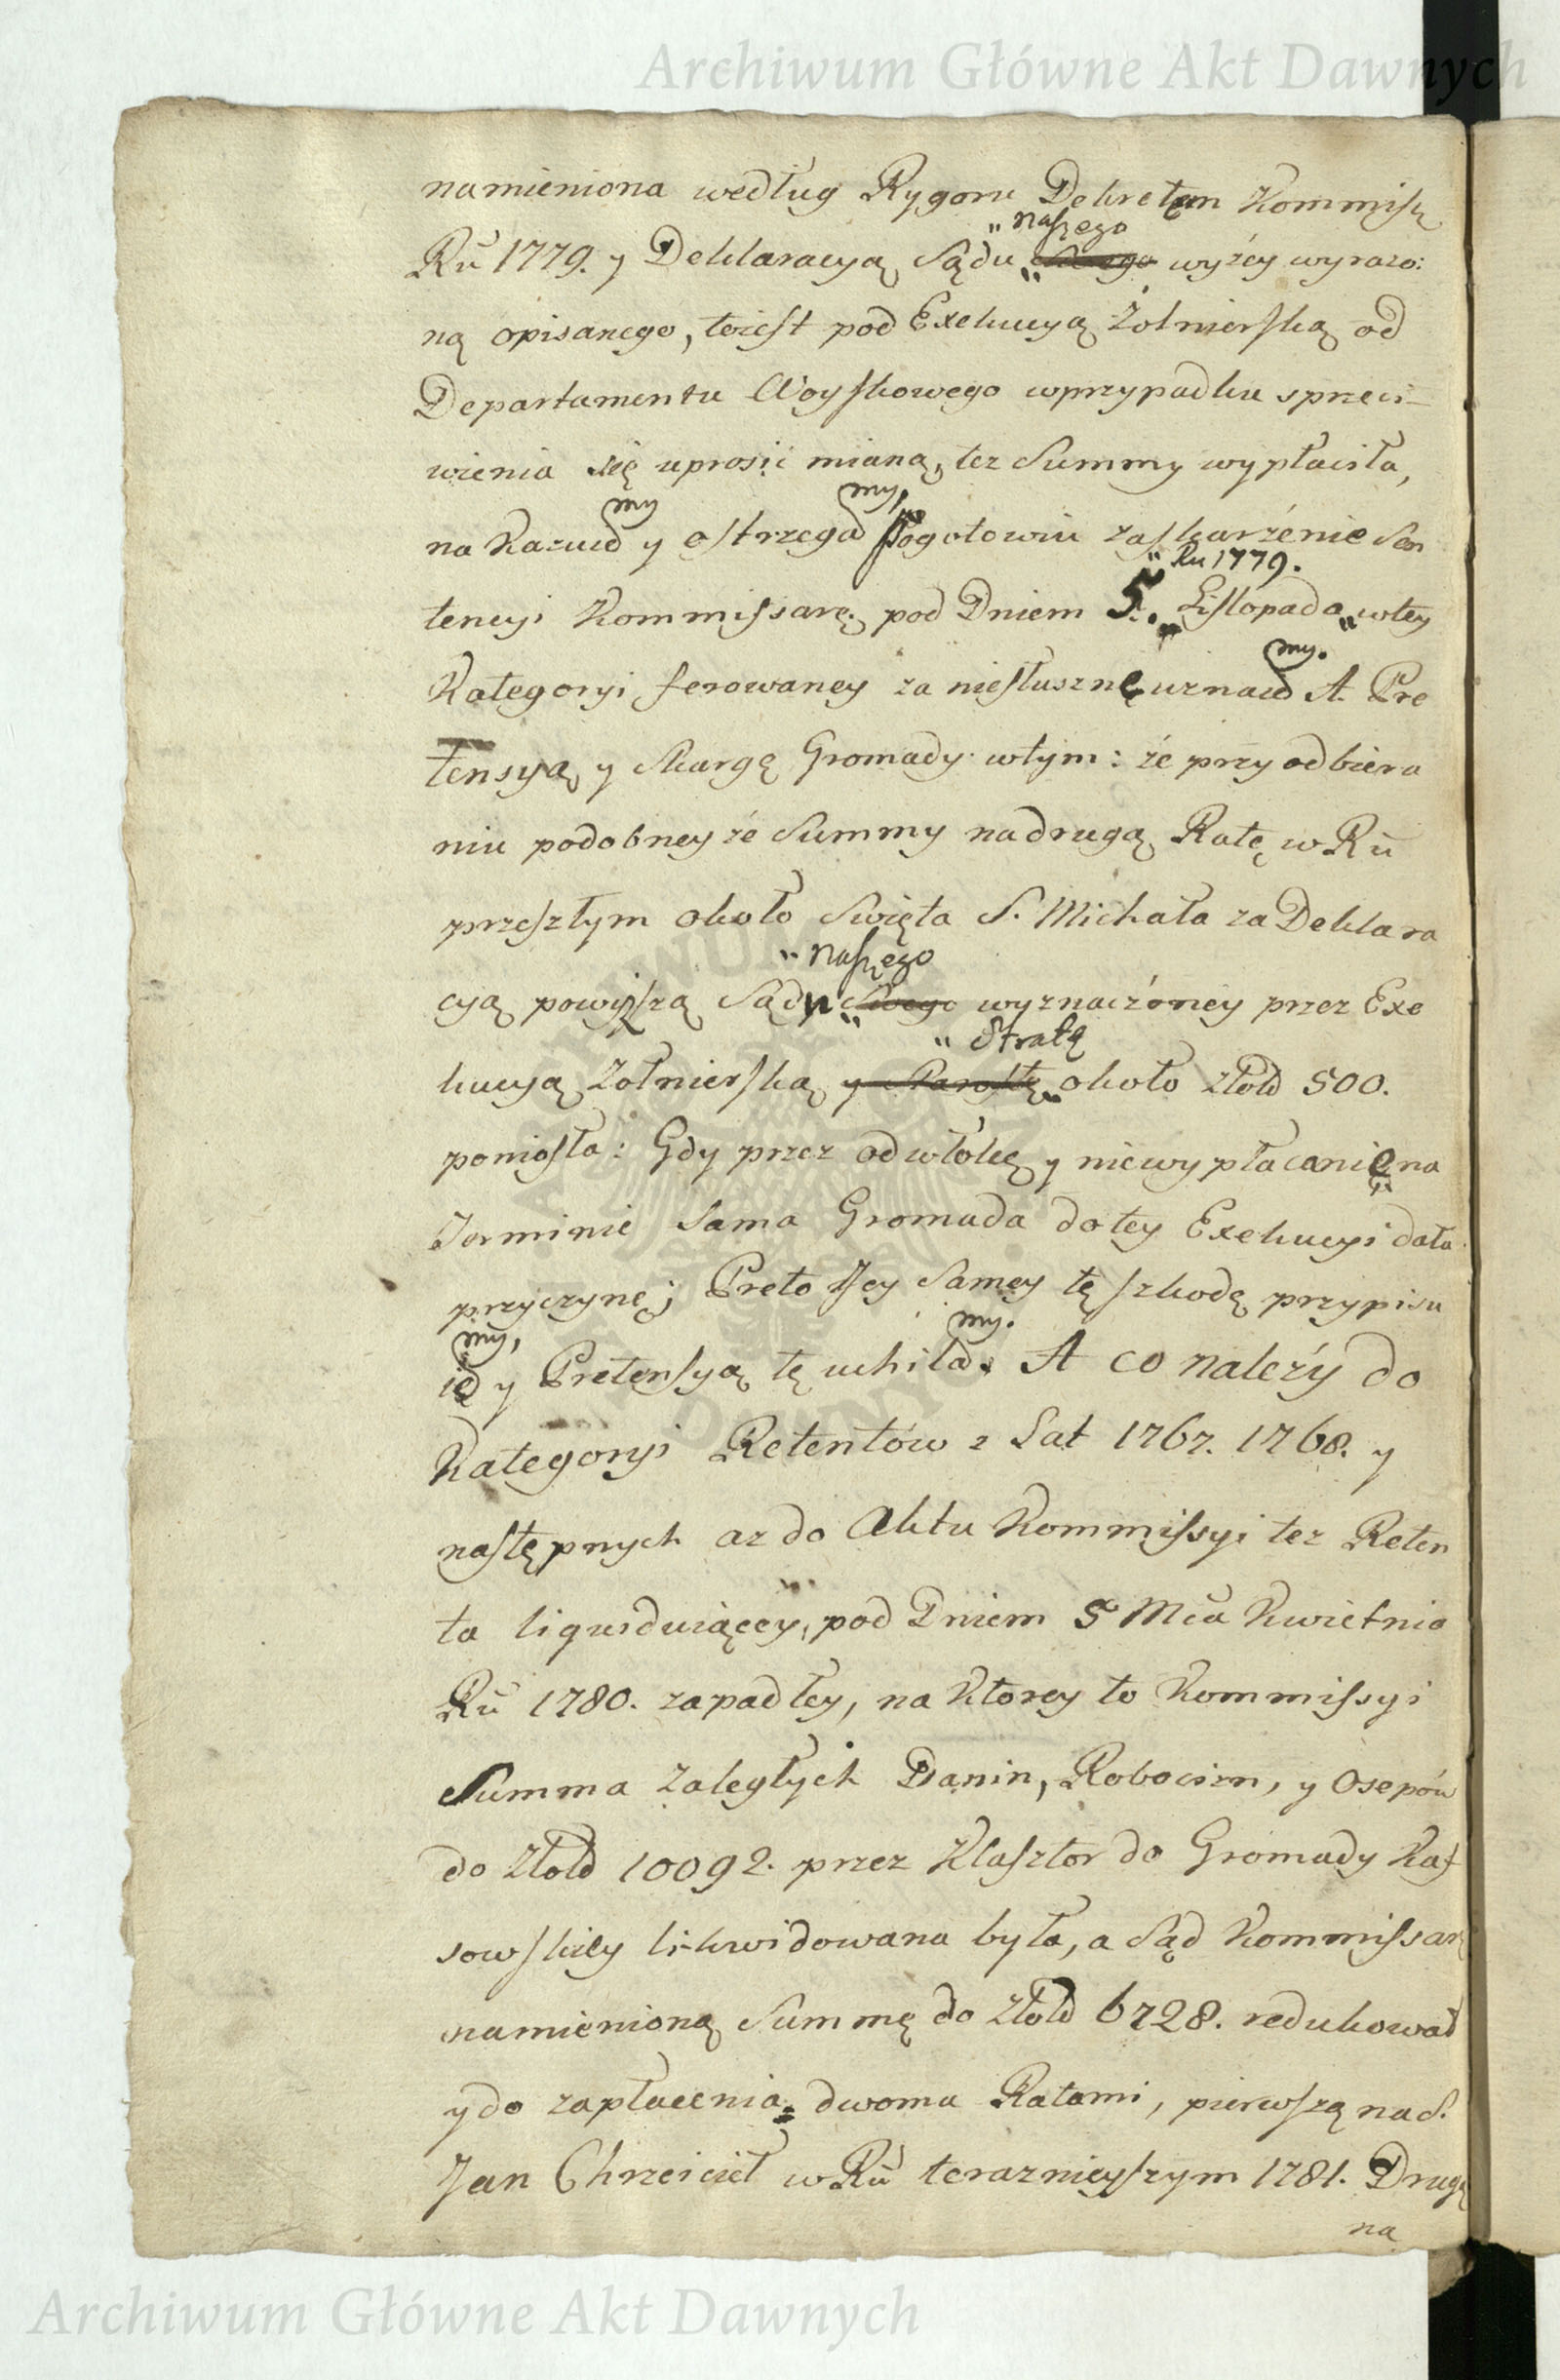 Archiwum Główne Akt Dawnych
namieniona według Rygoru Dekretem Kommisṣ
„naszego
Ru 1779. y Deklaracyą Sądu „ Swego wyżéy wyrażo:
ną opisanego, toiest pod Exekucyą Żołnierską od
Departamentu Woyskowego wprzypadku sprzeci-
wienia się uprosić mianą, tez Summy wypłaciła,
my my,
na kazuie y ostrzega pogotowiu zaskarżenie Sen
„Ru 1779.
tencyi Kommissarę. pod Dniem 5. Listopada „wtey
my.
Kategoryi ferowaney za niesłusznę uznaie A. Pre
tensyą y Skargę Gromady wtym: że przy odbiera
niu podobneyże Summy nadrugą Ratę w Ru
przeszłym około Swięta S. Michała za Deklara
„naszego
cyą powyższą Sądu „ Swego wyznaczoney przez Exe
„Stratę
kucyą Żołnierską y około Złotd 500.
poniosła: Gdy przez odwłokę y niewypłacanie na
Terminie Sama Gromada dotey Exekucyi dała
przyczynę; Preto Jey Samey tę szkodę przypisu
my, my.
ie y Pretensyą tę uchila. A co należy do
Kategoryi Retentów z Lat 1767. 1768. y
następnych az do Aktu Kommissyi tez Reten
ta liquiduiącey, pod Dniem 5 Mca Kwietnia
Ru 1780. zapadłey, na Ktorey to Kommissyi
Summa Zaległych Danin, Robocizn, y Osepów
do Złotd 10092. przez Klasztor do Gromady Kas
sowskiey likwidowana była, a Sąd Kommissarę
namienioną Summę do Złotd 6728. redukował
y do zapłacenia dwoma Ratami, pierwszą na S.
Jan Chrzciciel w Ru teraznieyszym 1781. Drugą
na
Archiwum Główne Akt Dawnych